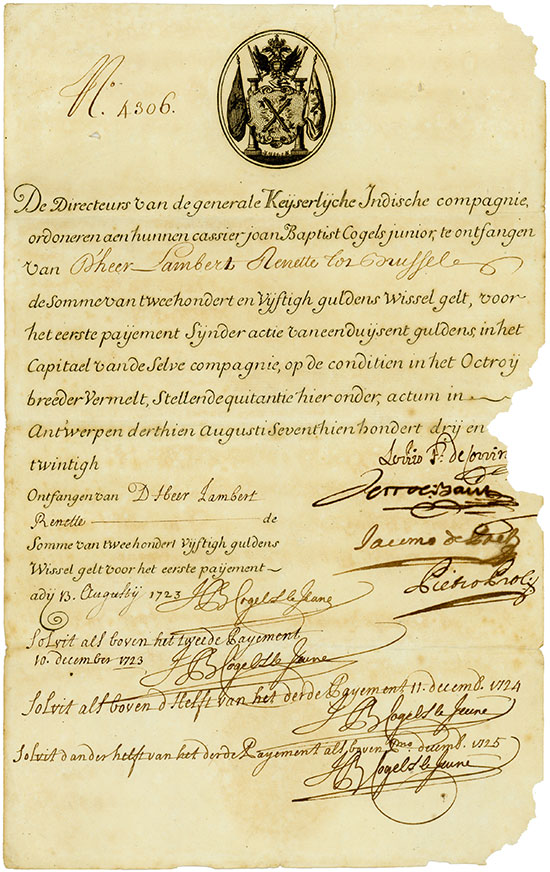 N.º 4306.
De Directeurs van de generale Keyserlÿche Indische compagnie,
ordoneren aen hunnen cassier joan Baptist Cogels junior, te ontfangen
van D'heer Lambert Renelle tot Brussel
de Somme van tweehondert en Vÿftigh guldens Wissel gelt, voor
het eerste paÿement Sÿnder actie van een duÿsent guldens, in het
Capitael van de Selve compagnie, op de conditien in het Octroÿ
breeder Vermelt, Stellende quitantie hier onder, actum in
Antwerpen derthien Augusti Seventhien hondert drÿ en
twintigh
Ontfangen van D Heer Lambert
Renelle de
Somme van tweehondert Vÿftigh guldens
Wissel gelt voor het eerste paÿement
adÿ 13. Augustÿ 1723 JB Cogels le Jeune
Solvit als boven het tweede Payement
10. december 1723 JB Cogels le Jeune
Solvit als boven d Helft van het derde Payement 11. decemb. 1724
JB Cogels le Jeune
Solvit d'ander helft van het derde Payement als boven decemb. 1725
JB Cogels le Jeune
Jacomo de
Pietro Proli